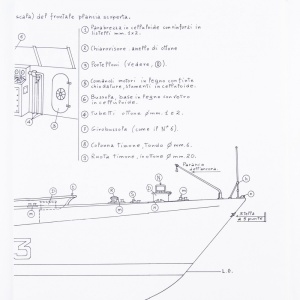 scala) del frontale plancia scoperta.
① Parabrezza in celluloide con rinforzi in
listelli mm. 1x2.
② Chiarvisore anello di ottone
③ Portelloni (vedere, Ⓑ).
⑤ Comandi motori in legno con finte
chiodature, strumenti in celluloide.
⑥ Bussola, base in legno con vetro
in celluloide.
⑥ Tubetti ottone ⌀ mm. 1x2.
⑦ Girobussola (come il N° 6).
⑧ Colonna Timone, Tondo ⌀ mm. 6.
⑨ Ruota Timone, in ottone ⌀ mm. 20.
Paranco
dell'ancora
Stella
a 5 punte
3
L.G.